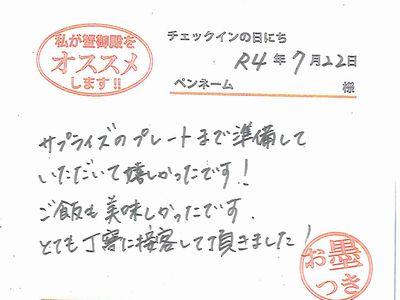 私が蟹御殿を
オススメ
します!!
チェックインの日にち
R4年 7月22日
ペンネーム 様
サプライズのプレートまで準備して
いただいて嬉しかったです!
ご飯も美味しかったです.
とても丁寧に接客して頂きました!
お墨
つき